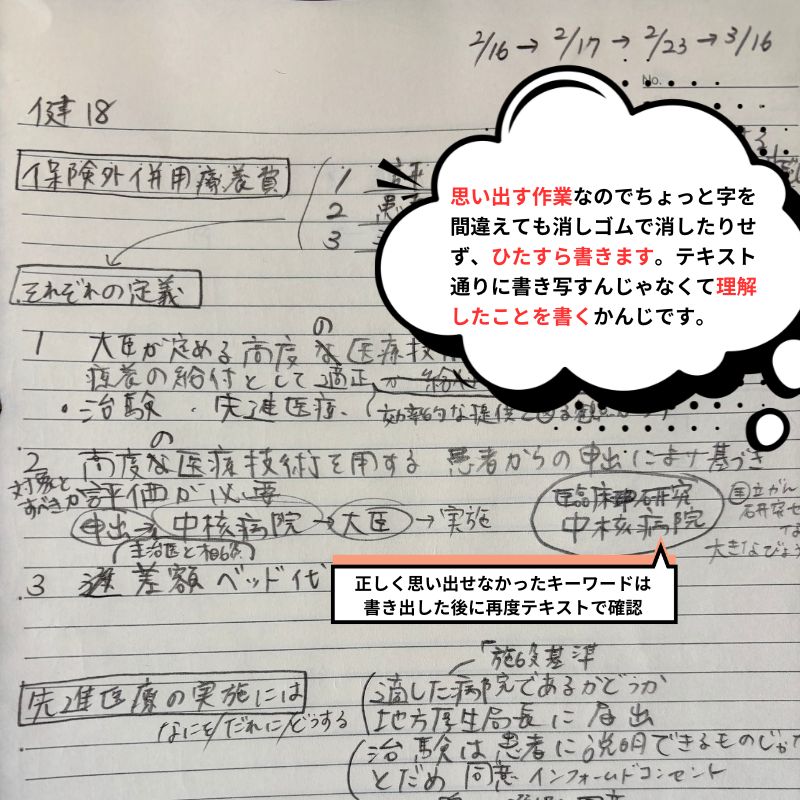 2/16→2/17→2/23→3/16
No.
健18
保険外併用療養費
1 評
2 患
3
思い出す作業なのでちょっと字を
間違えても消しゴムで消したりせ
ず、ひたすら書きます。テキスト
通りに書き写すんじゃなくて理解
したことを書くかんじです。
それぞれの定義
の
1 大臣が定める高度な医療技
療養の給付として適正か
・治験・先進医療、(効率的な提供を図る観点から
の
2 高度な医療技術を用する 患者からの申出により基づき
対象と
すべきか
評価が必要
申出→中核病院→大臣→実施
(主治医と相談)
臨床研究
中核病院
国立がん
研究セ
大きなびょう
3 差額ベッド代
正しく思い出せなかったキーワードは
書き出した後に再度テキストで確認
先進医療の実施には
なにを/だれに/どうする
施設基準
適した病院であるかどうか
地方厚生局長に届出
治験は患者に説明できるものじゃ
とだめ 同意 インフォームドコンセント